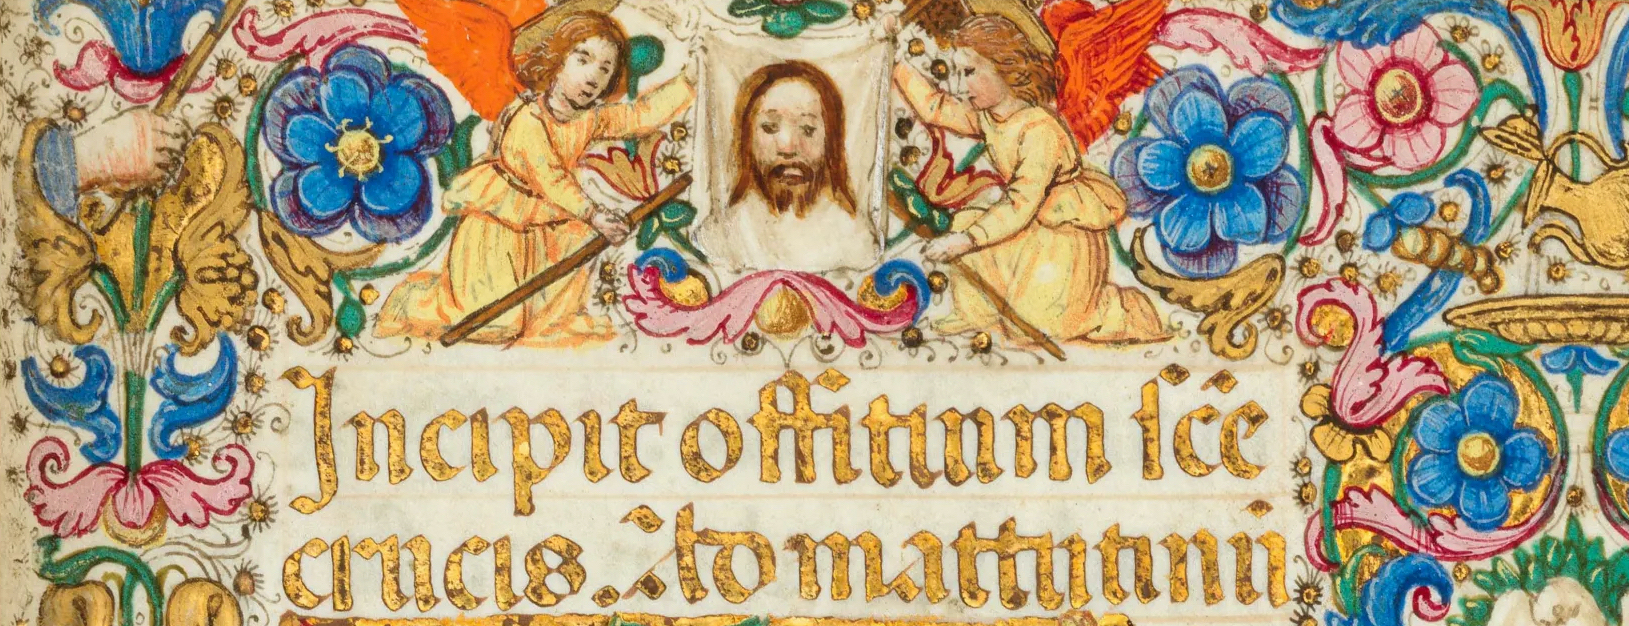 Incipit offitium ſc̄e
crucis. Ad mattutinū